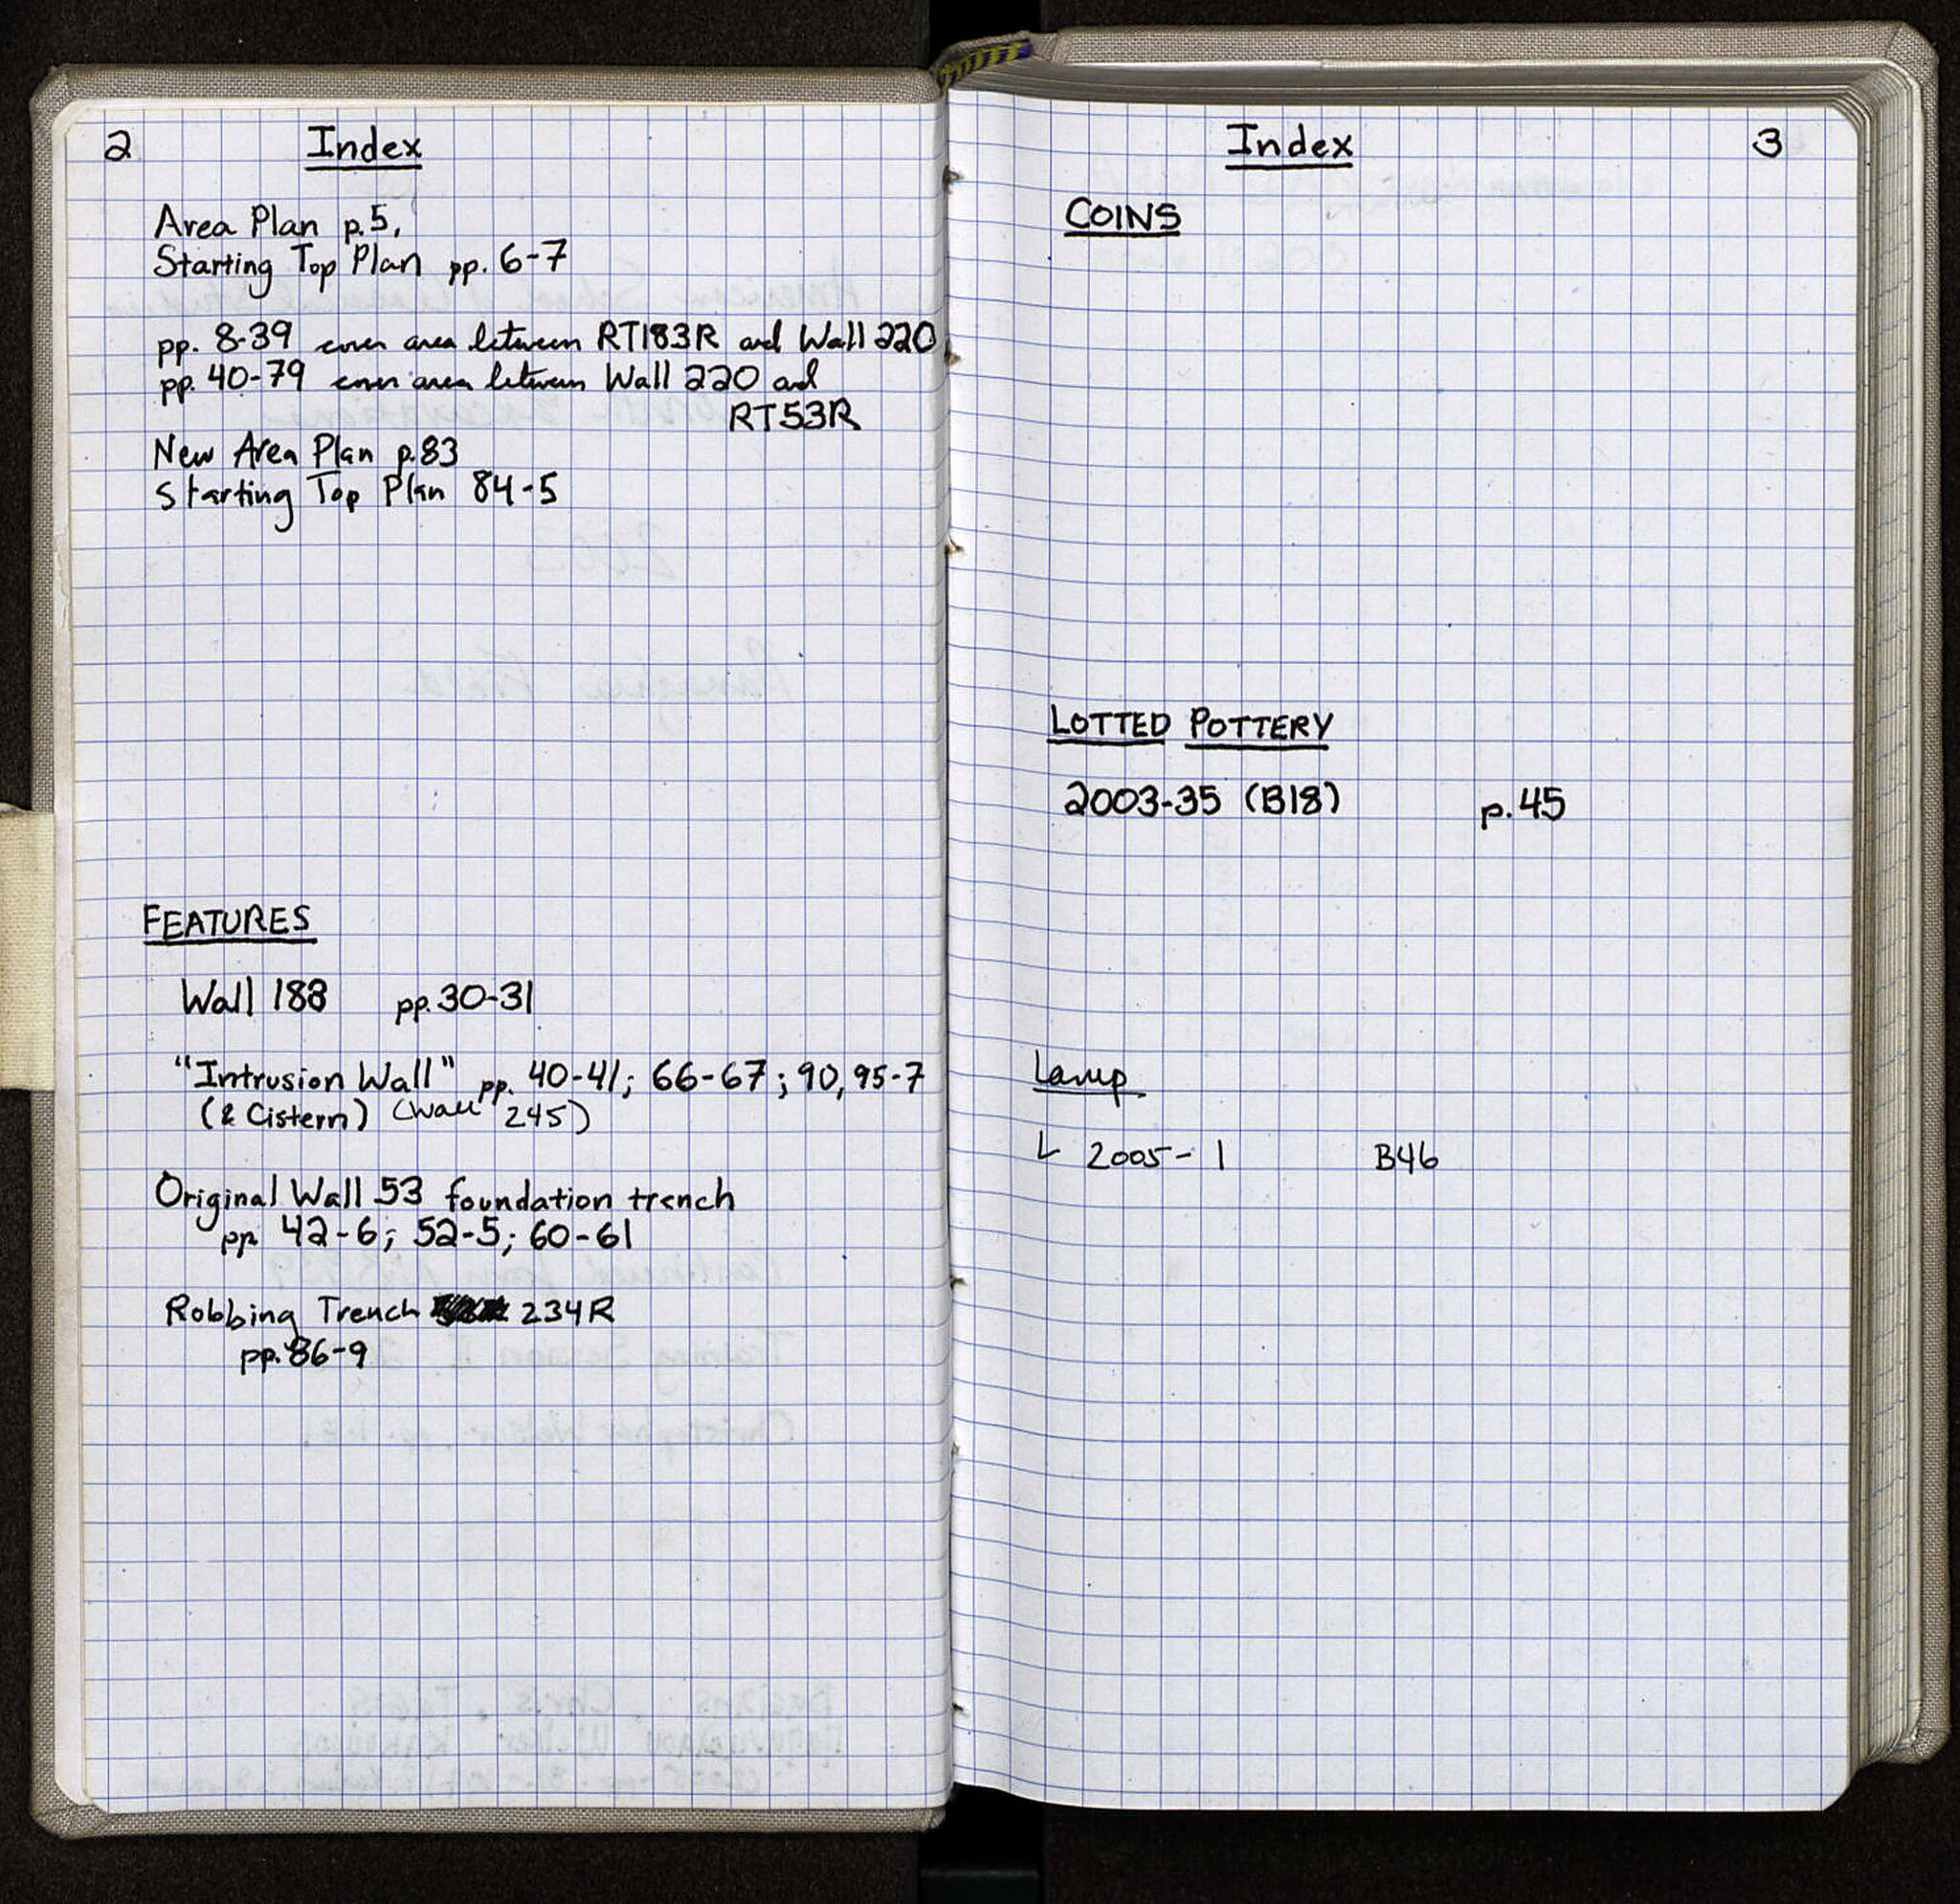 2 Index
Area Plan p.5,
Starting Top Plan pp. 6-7
pp. 8-39 cover area between RT183R and Wall 220
pp. 40-79 cover area between Wall 220 and
RT53R
New Area Plan p.83
Starting Top Plan 84-5
FEATURES
Wall 188 pp. 30-31
"Intrusion Wall" pp. 40-41; 66-67; 90, 95-7
(& Cistern) (Wall 245)
Original Wall 53 foundation trench
pp 42-6; 52-5; 60-61
Robbing Trench 234R
pp. 86-9
Index 3
COINS
LOTTED POTTERY
2003-35 (B18) p.45
Lamp
L 2005-1 B46